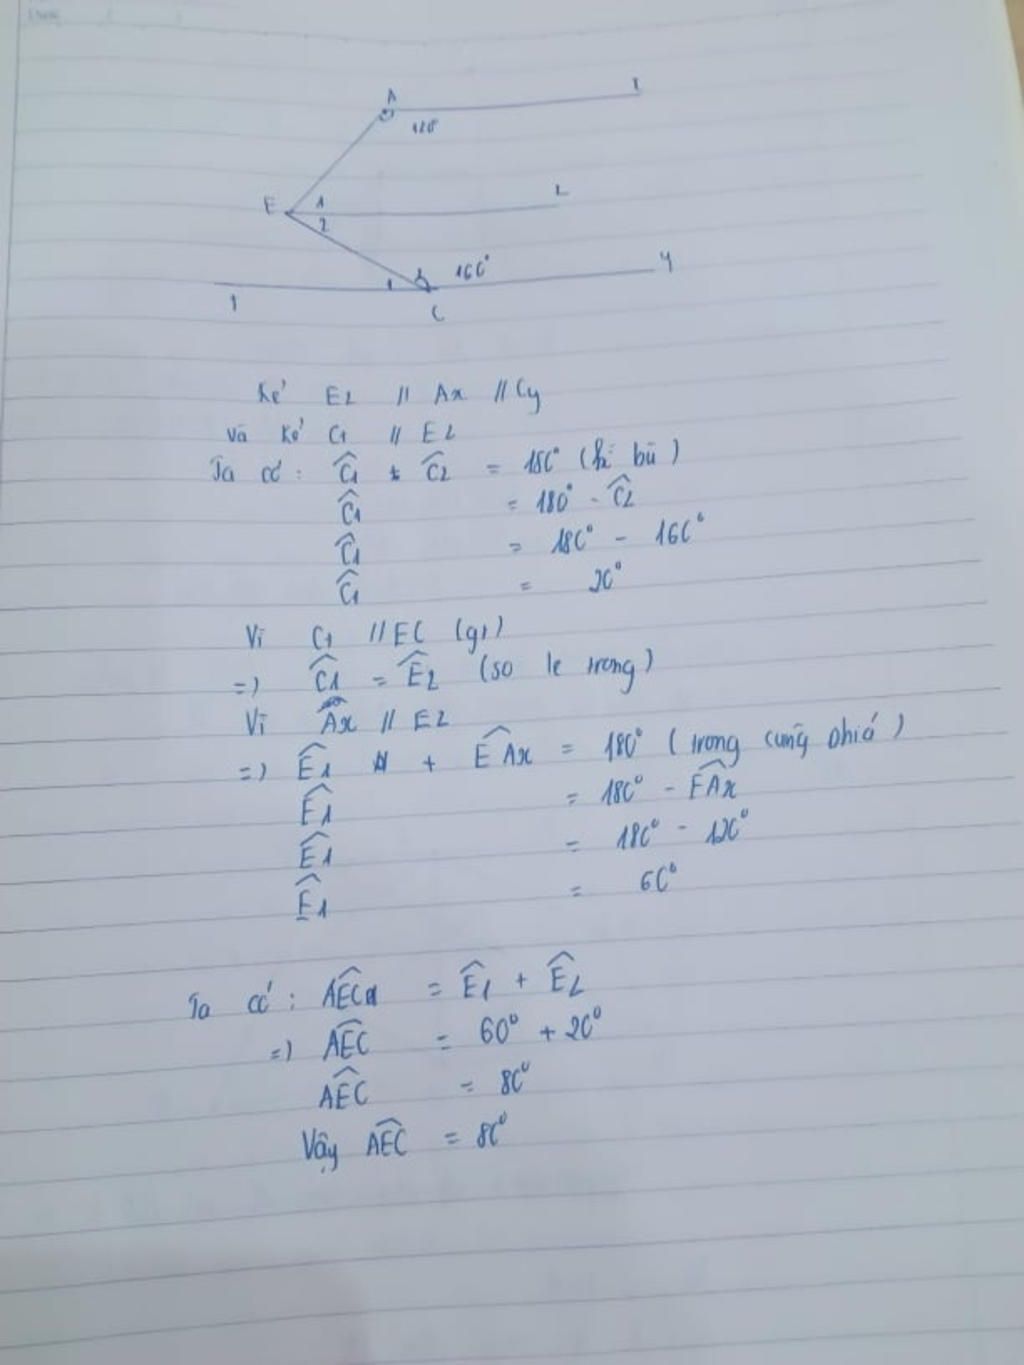 A
120°
E
1
2
L
1
2
160°
y
C
Kẻ EL // Ax // Cy
Và kẻ C1 // EL
Ta có: C1 + C2 = 180° (kề bù)
C1 = 180° - C2
C1 = 180° - 160°
C1 = 20°
Vì C1 // EC (gt)
=) C1 = E2 (so le trong)
Vì Ax // EL
=) E1 + EAx = 180° (trong cùng phiá)
E1 = 180° - EAx
E1 = 180° - 120°
E1 = 60°
Ta có: AEC = E1 + E2
=) AEC = 60° + 20°
AEC = 80°
Vậy AEC = 80°